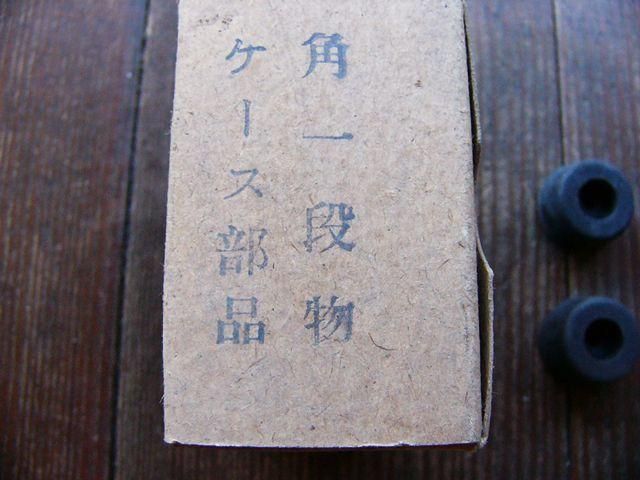 角一段物
ケース部品